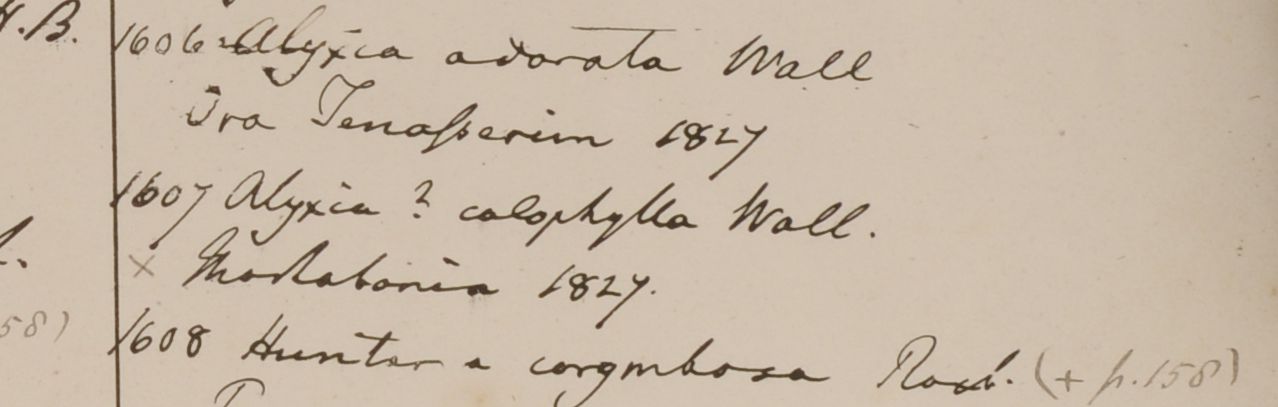 H.B.
1606 Alyxia odorata Wall
Ora Tenasserim 1827
1607 Alyxia ? calophylla Wall.
× Martabania 1827.
58)
1608 Hunteria corymbosa Roxb. (+ p. 158)